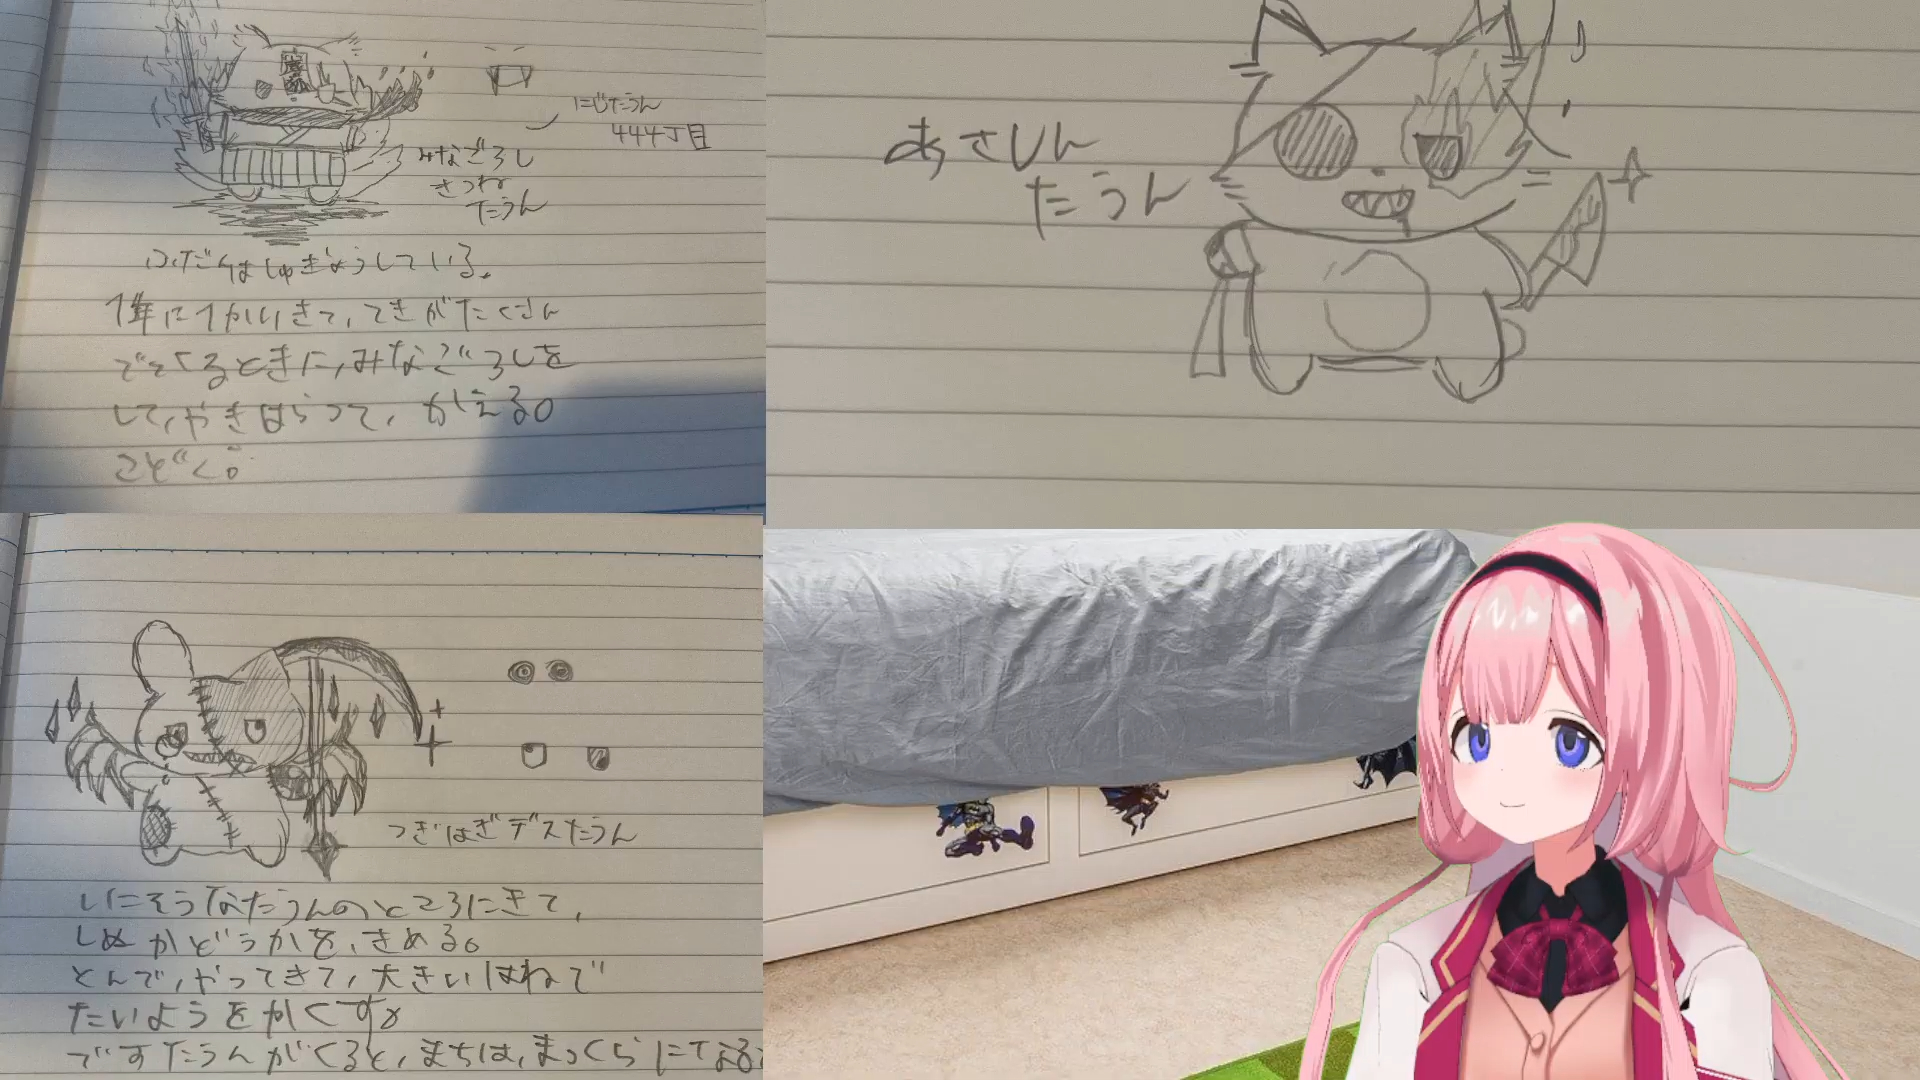 にじたうん
444丁目
みなごろし
きつね
たうん
ふだんはしゅぎょうしている。
1年に1かいきて、てきがたくさん
でてくるときに、みなごろしを
して、やきはらって、かえる。
こどく。
あさしん
たうん
つぎはぎデスたうん
しにそうなたうんのところにきて、
しぬかどうかを、きめる。
とんで、やってきて、大きいはねで
たいようをかくす。
ですたうんがくると、まちは、まっくらになる